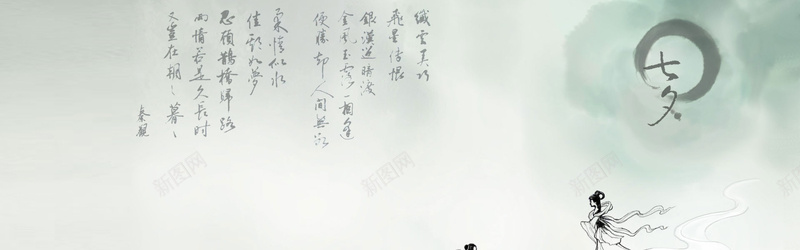 七夕
纖雲弄巧
飛星傳恨
銀漢迢迢暗渡
金風玉露一相逢
便勝卻人間無數
柔情似水
佳期如夢
忍顧鵲橋歸路
兩情若是久長時
又豈在朝々暮々
秦觀
新图网
新图网
新图网
新图网